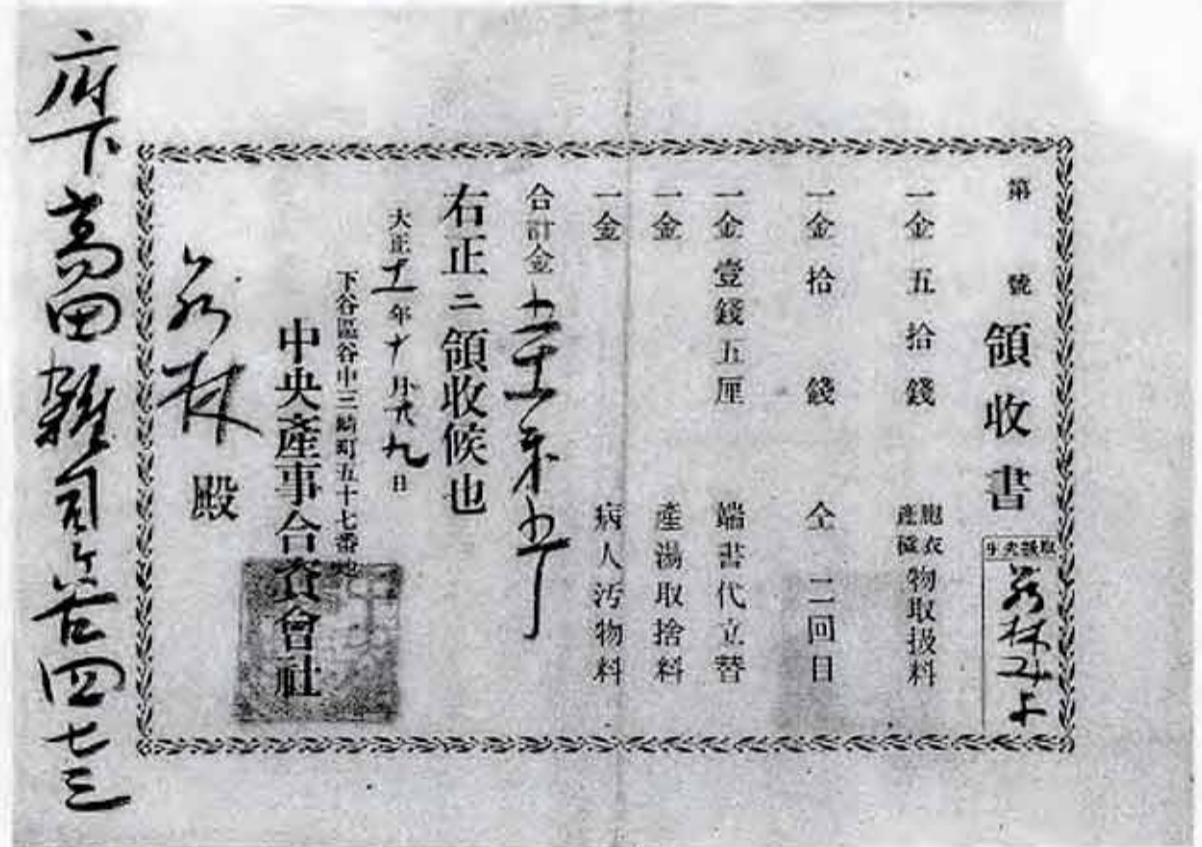 第 號 領收書
取扱夫牛
若林みよ
一金五拾錢 胞衣產穢物取扱料
一金拾錢 仝二回目
一金壹錢五厘 端書代立替
一金 產湯取捨料
一金 病人汚物料
合計金
右正ニ領收候也
大正十一年十月廿九日
下谷區谷中三崎町五十七番地
中央產事合資會社
若林殿
府下高田雜司ヶ谷四七三